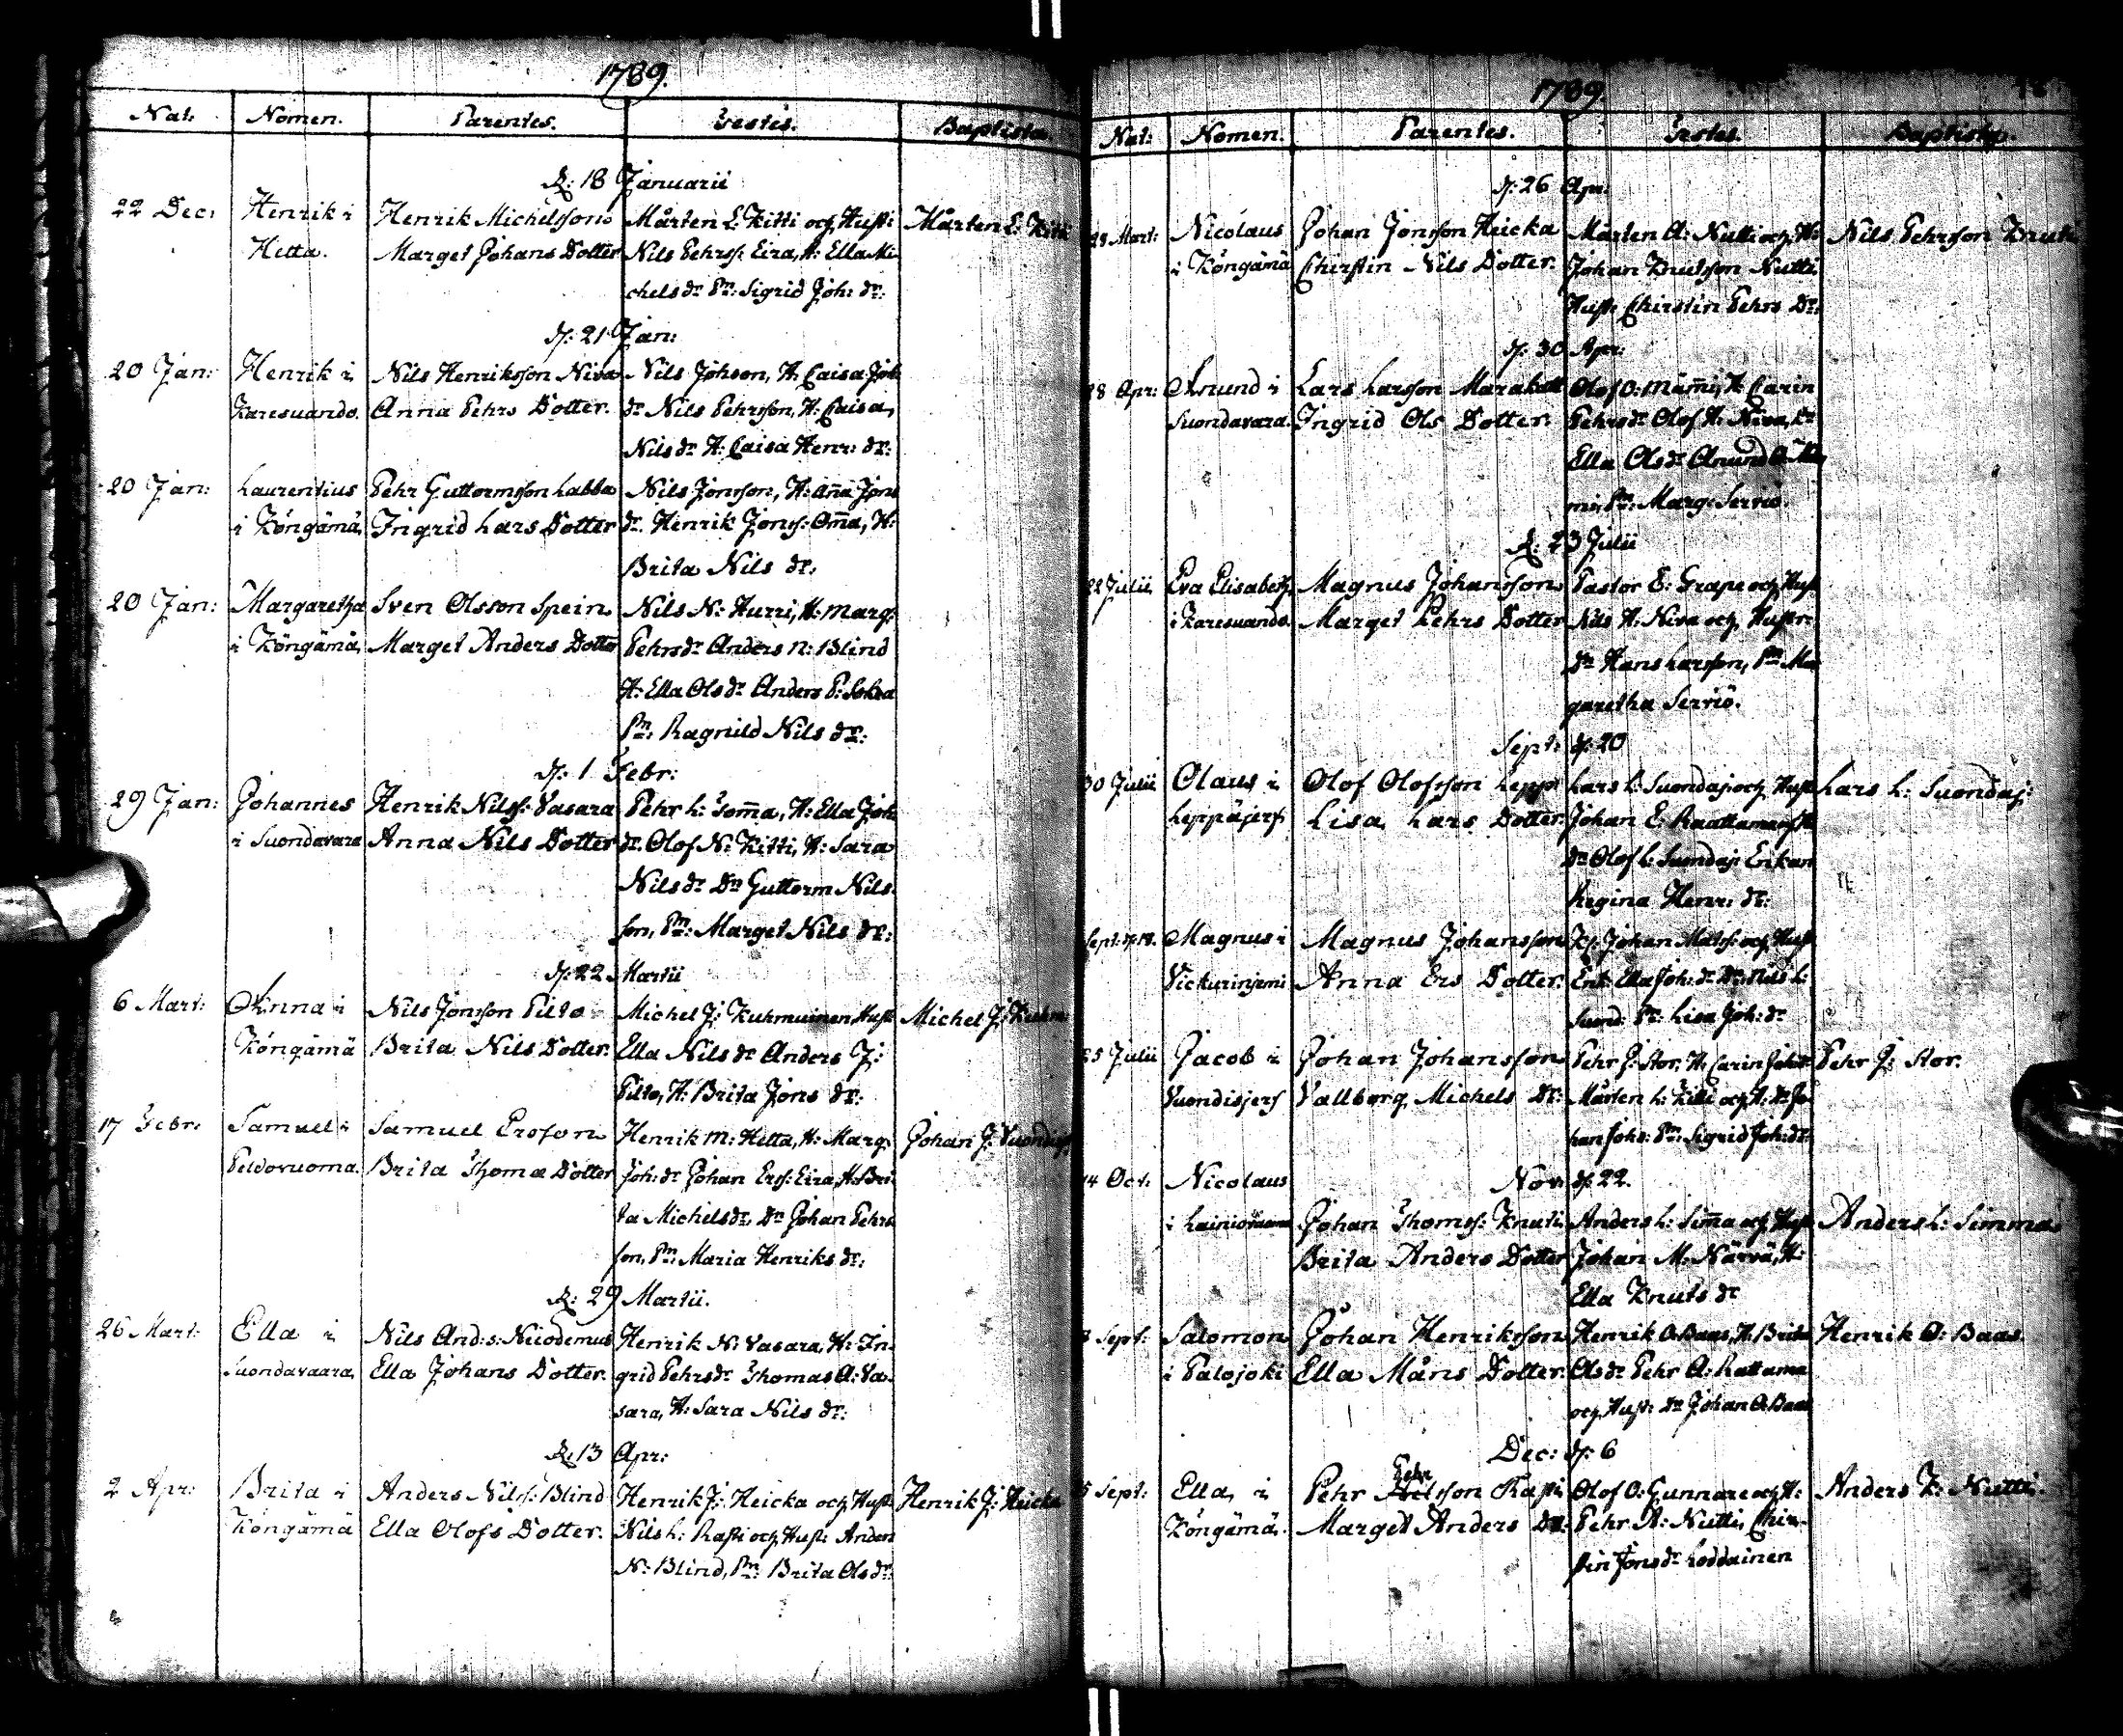 1789.
Nat: Nomen. Parentes. Testes. Baptista.
d: 18 Januarii
22 Dec: Henrik i Henrik Michelsson Mårten E: Kitti och Hust: Mårten E: Kitti
Hetta. Marget Johans Dotter Nils Pehrss: Eira, H: Ella Mi-
chels dr Pn: Sigrid Joh: dr:
d: 21 Jan:
20 Jan: Henrik i Nils Henriksson Niva Nils Johson, H: Caisa Joh
Karesuando. Anna Pehrs Dotter. dr Nils Pehrsson, H: Caisa,
Nils dr H: Caisa Henr: dr:
20 Jan: Laurentius Pehr Guttormsson Labba Nils Jonsson, H: Aña Jons
i Köngämä, Ingrid Lars Dotter dr. Henrik Jonss: Oma, H:
Brita Nils dr:
20 Jan: Margaretha Sven Olsson Spein Nils N: Hurri, H: Marg:
i Köngämä, Marget Anders Dotter Pehrs dr Anders N: Blind
H: Ella Ols dr Anders P:
Pn: Ragnild Nils dr:
d: 1 Febr:
29 Jan: Johannes Henrik Nilss: Vasara Pehr L: Toma, H: Ella Joh:
i Suondavara Anna Nils Dotter dr. Olof N: Kitti, H: Sara
Nils dr Dn Guttorm Nils-
son, Pn: Marget Nils dr:
d: 22 Martii
6 Mart: Anna i Nils Jonsson Pilto Michel J: Kuhmuinen, Hust: Michel J: Kuhm
Köngämä Brita Nils Dotter. Ella Nils dr Anders J:
Pilto, H: Brita Jons dr:
17 Febr: Samuel i Samuel Ersson Henrik M: Hetta, H: Marg: Johan J: Vuondisj
Peldovuoma. Brita Thomæ Dotter Joh: dr Johan Erss: Eira, H: Bri-
ta Michels dr, Dn Johan Pehrs
son, Pn: Maria Henriks dr:
d: 29 Martii.
26 Mart: Ella i Nils And: s: Nicodemus Henrik N: Vasara, H: In-
Suondavaara, Ella Johans Dotter. grid Pehrs dr Thomas A: Va-
sara, H: Sara Nils dr:
d: 13 Apr:
2 Apr: Brita i Anders Nilss: Blind Henrik J: Heicka och Hust: Henrik J: Heicka
Köngämä Ella Olofs Dotter. Nils L: Rasti och Hust: Anders
N: Blind, Pn: Brita Ols dr:
1789.
Nat: Nomen. Parentes. Testes. Baptista.
d: 26 Apr:
28 Mart: Nicolaus Johan Jonsson Heicka Mårten A: Nutti och H: Nils Pehrsson Knuti
i Köngämä Chirstin Nils Dotter. Johan Knutsson Nutti
Hust: Chirstin Pehrs Dr:
d: 30 Apr:
28 Apr: Anund i Lars Larsson Marakatt Olof O: Mämi, H: Carin
Suondavara. Ingrid Ols Dotter. Pehrs dr Olof H: Niva, Dr
Ella Ols dr Anund O: Mä
mi, Pn: Marg: Serviö.
d: 23 Julii
22 Julii Eva Elisabeth Magnus Johansson Pastor E: Grape och Hust:
i Karesuando. Marget Pehrs Dotter Nils H: Niva och Hustr:
Dn Hans Larsson, Pn Mar
garetha Serviö.
Sept: d: 20
30 Julii Olaus i Olof Olofsson Lepp Lars L: Suondaj och Hust: Lars L: Suondaj:
Leppäjerf Lisa Lars Dotter. Johan E: Raattama och
Dn Olof L: Suondaj: Enkan
Regina Henr: dr:
Sept: Magnus i Magnus Johansson Johan Matss: och Hust:
Vickurinjemi Anna Ers Dotter. Enk: Ella Joh: dr Dn: Nils L:
Suond: Pn: Lisa Joh: dr
25 Julii Jacob i Johan Johansson Pehr J: Stor, H: Carin Pehr J: Stor.
Vuondisjerf Vallborg Michels Dr: Mårten L: Kitti och H: Dn Jo
han Johs: Pn: Sigrid Joh: dr:
14 Oct: Nicolaus Nov: d: 22.
i Lainiovuoma Johan Thomss: Knuti Anders L: Sima och Hust: Anders L: Simma
Brita Anders Dotter Johan M: Närvä, H:
Ella Knuts dr
Sept: Salomon Johan Henriksson Henrik O: Baas, H: Brita Henrik O: Baas.
i Palojoki Ella Måns Dotter. Ols dr Pehr A: Rattama
och Hust: Dn Johan O: Baas
Dec: d: 6
Pehr
5 Sept: Ella i Pehr sson Rasti Olof O: Gunnare och H: Anders K: Nutti.
Köngämä. Marget Anders Dr: Pehr A: Nutti, Chir-
stin Jons dr Loddainen